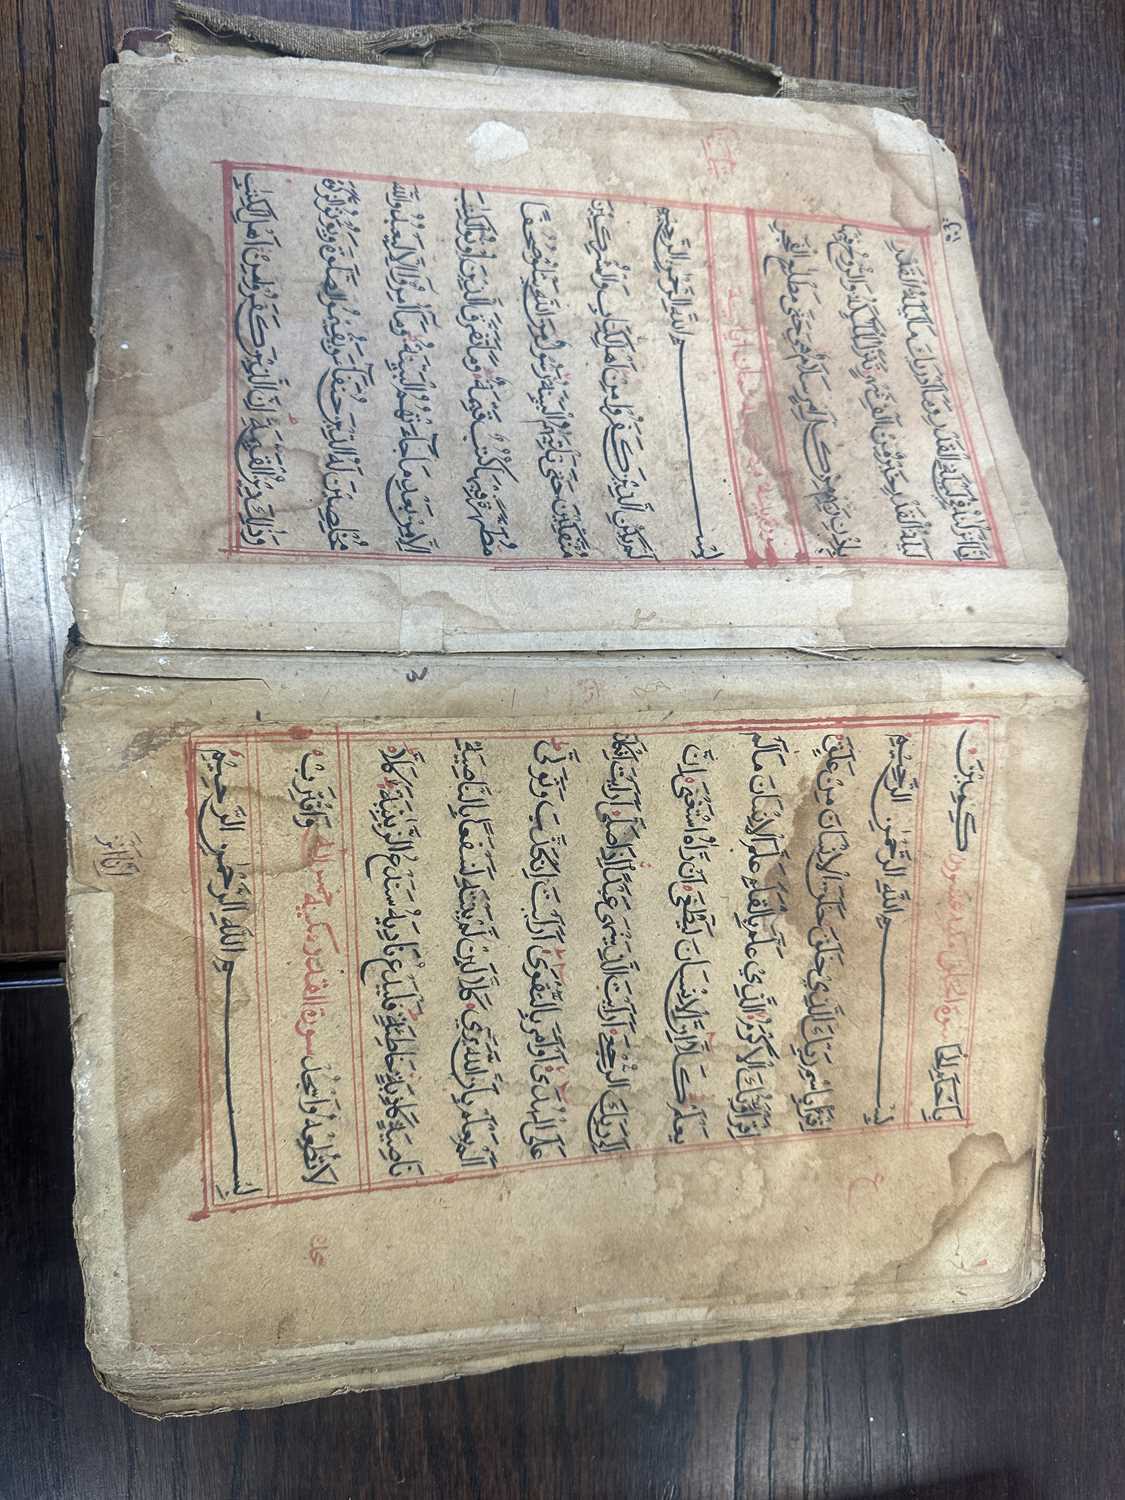 بِاَحْكَمِ الْحٰ سورة العلق مكية عشرون كمِيْنَ
بِسْــــــمِ اللّٰهِ الرَّحْمٰنِ الرَّحِيْمِ
اِقْرَاْ بِاسْمِ رَبِّكَ الَّذِيْ خَلَقَ خَلَقَ الْاِنْسَانَ مِنْ عَلَقٍ
اِقْرَاْ وَرَبُّكَ الْاَكْرَمُ الَّذِيْ عَلَّمَ بِالْقَلَمِ عَلَّمَ الْاِنْسَانَ مَا لَمْ
يَعْلَمْ كَلَّا اِنَّ الْاِنْسَانَ لَيَطْغٰى اَنْ رَاٰهُ اسْتَغْنٰى اِنَّ
اِلٰى رَبِّكَ الرُّجْعٰى اَرَاَيْتَ الَّذِيْ يَنْهٰى عَبْدًا اِذَا صَلّٰى اَرَاَيْتَ اِنْ كَانَ
عَلَى الْهُدٰى اَوْ اَمَرَ بِالتَّقْوٰى اَرَاَيْتَ اِنْ كَذَّبَ وَتَوَلّٰى
اَلَمْ يَعْلَمْ بِاَنَّ اللّٰهَ يَرٰى كَلَّا لَئِنْ لَمْ يَنْتَهِ لَنَسْفَعًا بِالنَّاصِيَةِ
نَاصِيَةٍ كَاذِبَةٍ خَاطِئَةٍ فَلْيَدْعُ نَادِيَهُ سَنَدْعُ الزَّبَانِيَةَ كَلَّا
لَا تُطِعْهُ وَاسْجُدْ سورة القدر مكية خمس اٰية وَاقْتَرِبْ
بِسْــــــمِ اللّٰهِ الرَّحْمٰنِ الرَّحِيْمِ
اِنَّا اَنْزَ
اِنَّا اَنْزَلْنٰهُ فِيْ لَيْلَةِ الْقَدْرِ وَمَا اَدْرٰىكَ مَا لَيْلَةُ الْقَدْرِ
لَيْلَةُ الْقَدْرِ خَيْرٌ مِنْ اَلْفِ شَهْرٍ تَنَزَّلُ الْمَلٰئِكَةُ وَالرُّوْحُ فِيْهَا
بِاِذْنِ رَبِّهِمْ مِنْ كُلِّ اَمْرٍ سَلَامٌ هِيَ حَتّٰى مَطْلَعِ الْفَجْرِ
بِسْــــــمِ اللّٰهِ الرَّحْمٰنِ الرَّحِيْمِ
لَمْ يَكُنِ الَّذِيْنَ كَفَرُوْا مِنْ اَهْلِ الْكِتَابِ وَالْمُشْرِكِيْنَ
مُنْفَكِّيْنَ حَتّٰى تَاْتِيَهُمُ الْبَيِّنَةُ رَسُوْلٌ مِنَ اللّٰهِ يَتْلُوْا صُحُفًا
مُطَهَّرَةً فِيْهَا كُتُبٌ قَيِّمَةٌ وَمَا تَفَرَّقَ الَّذِيْنَ اُوْتُوا الْكِتٰبَ
اِلَّا مِنْ بَعْدِ مَا جَاءَتْهُمُ الْبَيِّنَةُ وَمَا اُمِرُوْا اِلَّا لِيَعْبُدُوا اللّٰهَ
مُخْلِصِيْنَ لَهُ الدِّيْنَ حُنَفَاءَ وَيُقِيْمُوا الصَّلٰوةَ وَيُؤْتُوا الزَّكٰوةَ
وَذٰلِكَ دِيْنُ الْقَيِّمَةِ اِنَّ الَّذِيْنَ كَفَرُوْا مِنْ اَهْلِ الْكِتٰبِ